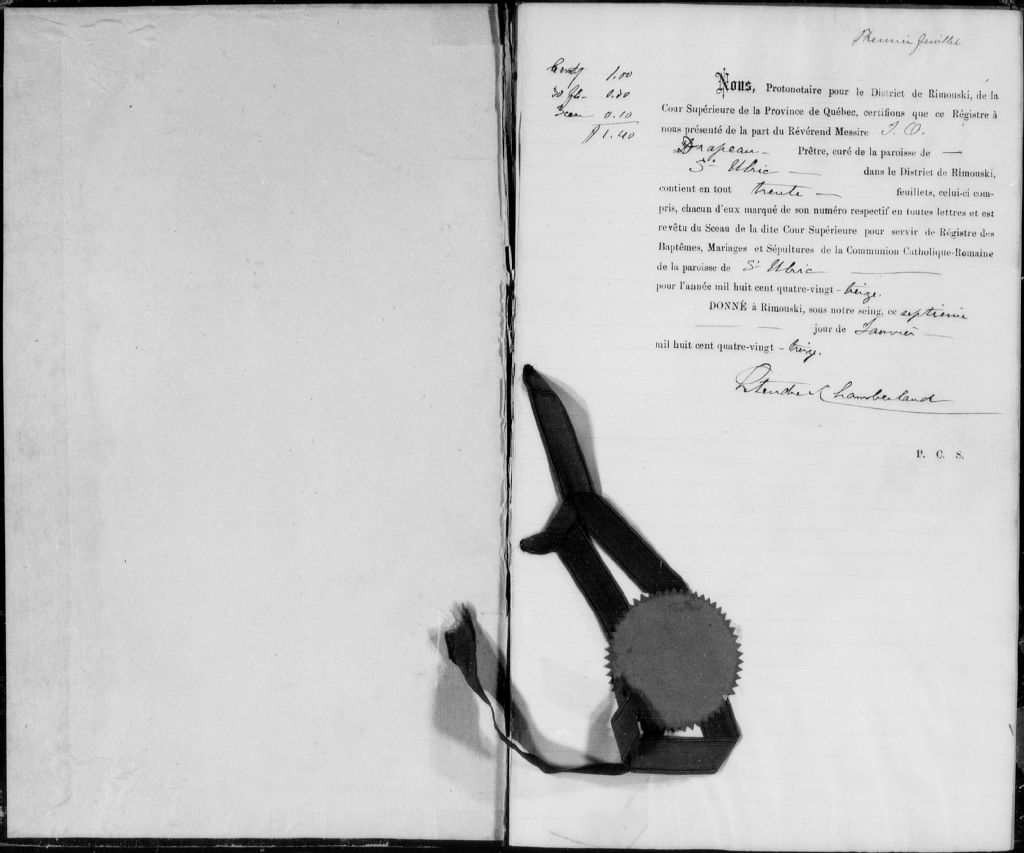 Premier feuillet
Certif 1.00
30 fts- 0.30
Sceau 0.10
$1.40
Nous, Protonotaire pour le District de Rimouski, de la
Cour Supérieure de la Province de Québec, certifions que ce Régistre à
nous présenté de la part du Révérend Messire J. O.
Drapeau - Prêtre, curé de la paroisse de —
St Ulric — dans le District de Rimouski,
contient en tout trente — feuillets, celui-ci com-
pris, chacun d'eux marqué de son numéro respectif en toutes lettres et est
revêtu du Sceau de la dite Cour Supérieure pour servir de Régistre des
Baptêmes, Mariages et Sépultures de la Communion Catholique-Romaine
de la paroisse de St Ulric —
pour l'année mil huit cent quatre-vingt - treize.
DONNÉ à Rimouski, sous notre seing, ce septième
— — jour de Janvier —
mil huit cent quatre-vingt - treize.
Letendre & Chamberland
P. C. S.